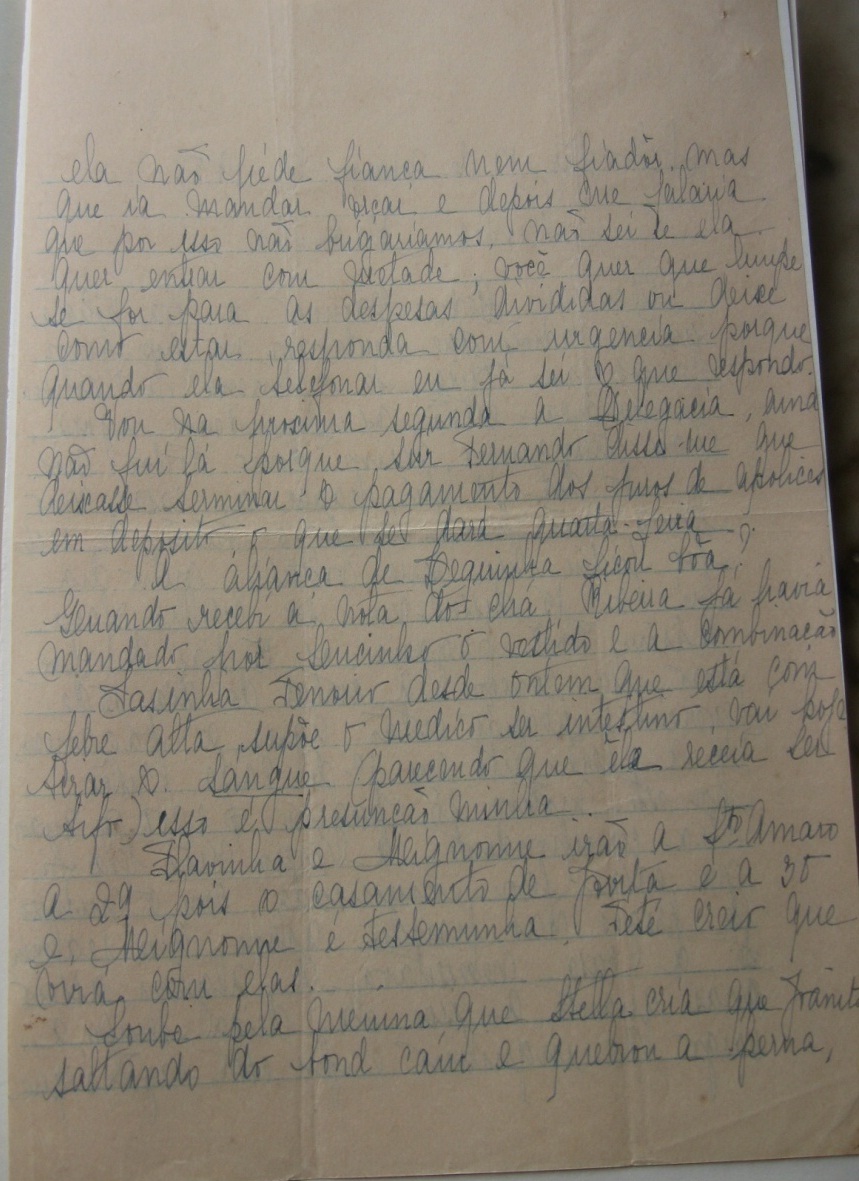 ela não péde fiança nem fiadôr, mas
que ia mandar orçar e depois me falaria
que por isso não brigariamos, não sei se ela
quer entrar com metade; você quer que limpe
se for para as despesas divididas ou deixe
como estar, responda com urgencia porque
quando ela telefonar eu já sei o que respondo.
Vou na proxima segunda a Delegacia, ainda
não fui lá porque snr Fernando disse-me que
deixasse terminar o pagamento dos juros de apolices
em deposito o que se dará quarta-feira.
A aliança de Dequinha ficou bôa?
Quando recebi a nota dos chá, Ribeiro já havia
mandado por Lucinho o vestido e a combinação
Tenorio desde ontem que está com
febre alta, supõe o medico ser intestino, vai hoje
tirar o sangue (parecendo que êle receia ser
tifo) isso é presunção minha..
Flavinha e Meignonne irão a Sto Amaro
a 29 pois o casamento de é a 30
e Meignonne é testemunha, Teté creio que
virá com elas.
Soube pela menina que Stella cria que
saltando do bond caiu e quebrou a perna,